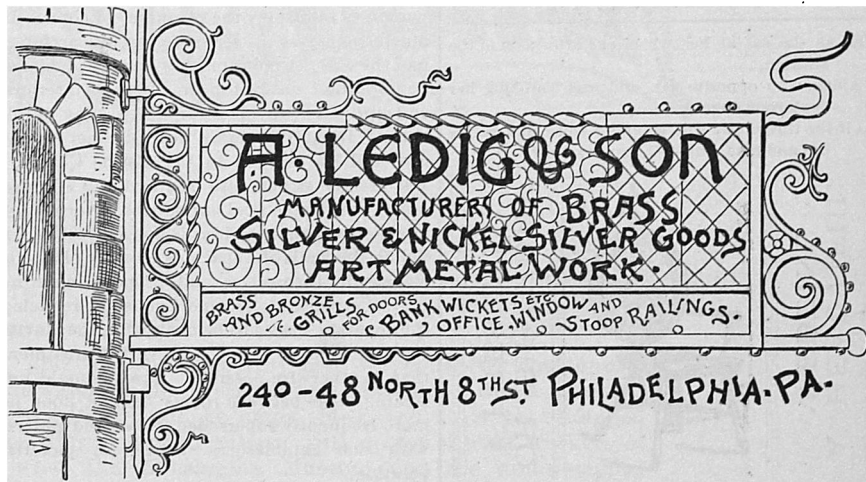 A. LEDIG & SON
MANUFACTURERS OF BRASS
SILVER & NICKEL-SILVER GOODS
ART METAL WORK.
BRASS AND BRONZE GRILLS FOR DOORS BANK WICKETS ETC OFFICE, WINDOW AND STOOP RAILINGS.
240-48 NORTH 8TH ST. PHILADELPHIA. PA.